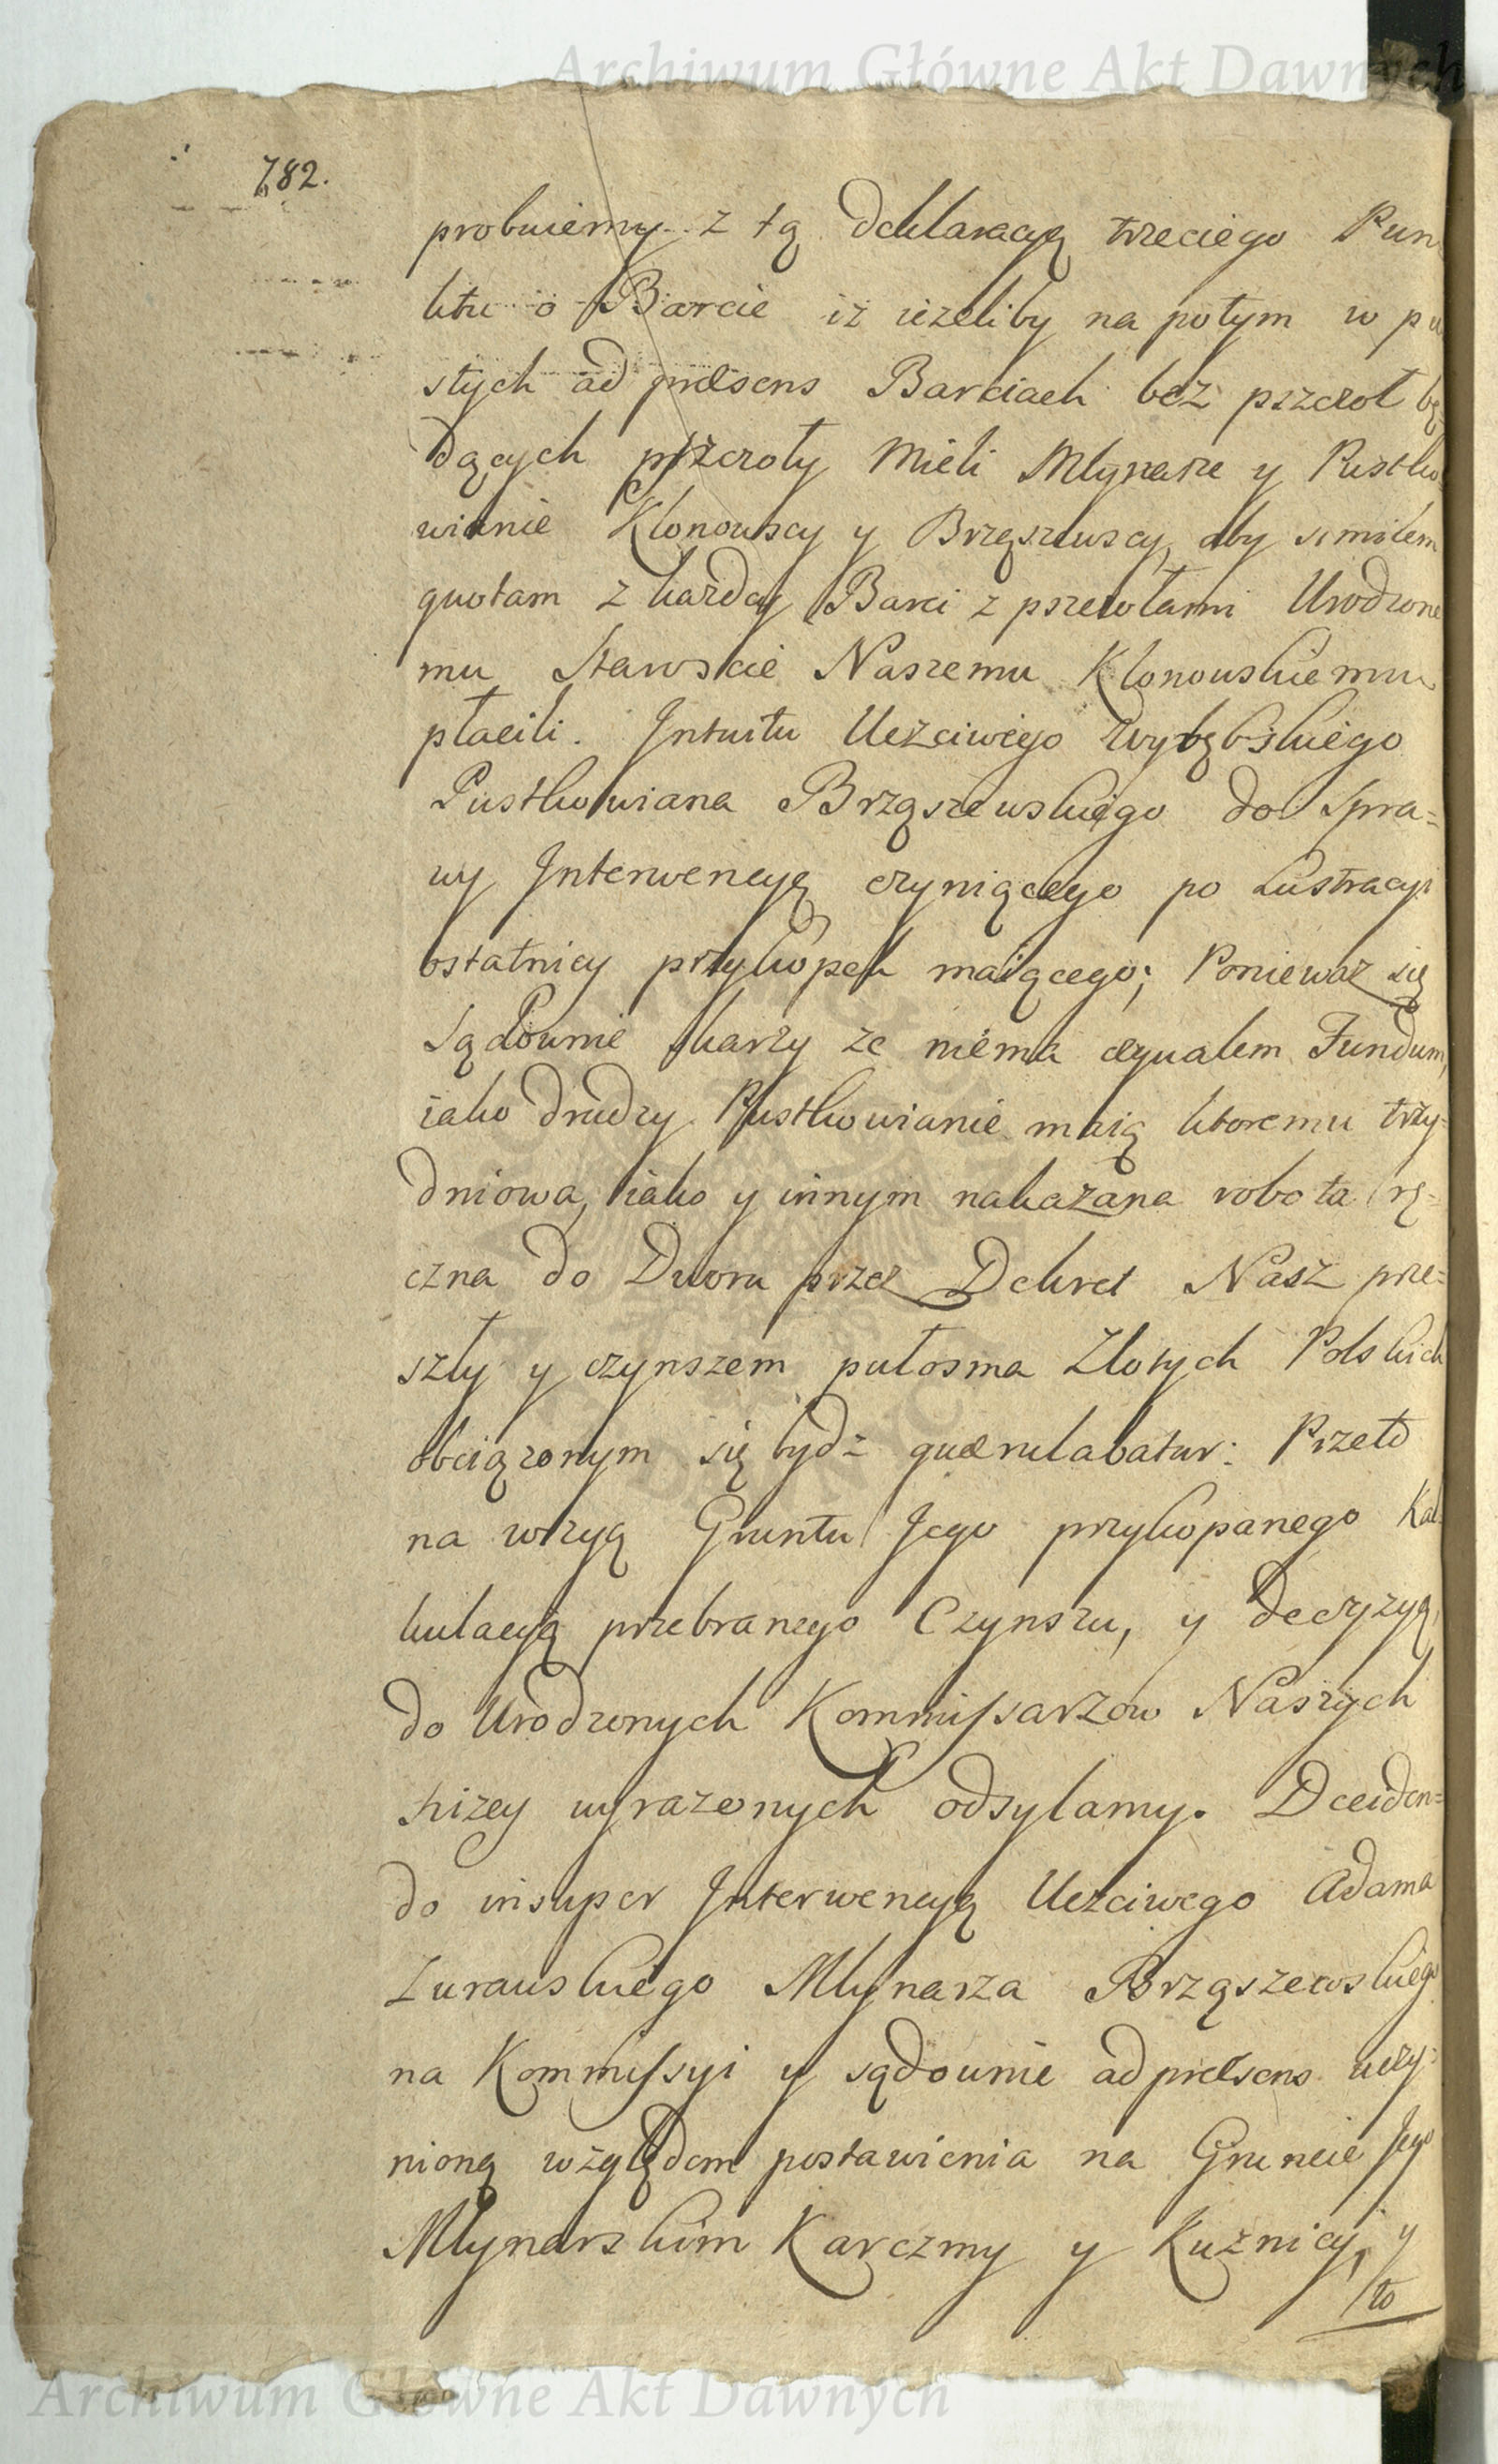 Archiwum Główne Akt Dawnych
782.
probuiemy z tą deklaracyą trzeciego Pun
ktu o Barcie iż ieżeliby na potym w pu
stych ad præsens Barciach bez pszczoł bę
dących pszczoły mieli Mlynarze y Pustko
wianie Klonowscy y Brząszewscy, aby similem
quotam z każdey Barci z pszczołami Urodzone
mu Staroscie Naszemu Klonowskiemu
płacili. Intuitu Uczciwego
Pustkowiana Brząszewskiego do spra=
wy Interwencyą czyniącego po Lustracyi
ostatnicy przykopek maiącego; Ponieważ się
sądownie skarży ze niema æqualem Fundum,
iako drudzy Pustkowianie maią ktoremu trzy=
dniowa, iako y innym nakazana robota rę=
czna do Dworu przez Dekret Nasz prze=
szły y czynszem pułosma Złotych Polskich
obciązonym się bydz quærulabatur: Przeto
na wizyą Gruntu Jego przykopanego Kal
kulacyą przebranego Czynszu, y decyzyą,
do Urodzonych Kommissarzow Naszych
niżey wyrazonych odsylamy. Deciden=
do insuper Interwencyą Uczciwego Adama
Zurawskiego Mlynarza Brząszewskiego
na Kommissyi y sądownie ad præsens uczy=
nioną względem postawienia na Gruncie Jego
Mlynarskim Karczmy y Kuźnicy, y
to
Archiwum Główne Akt Dawnych